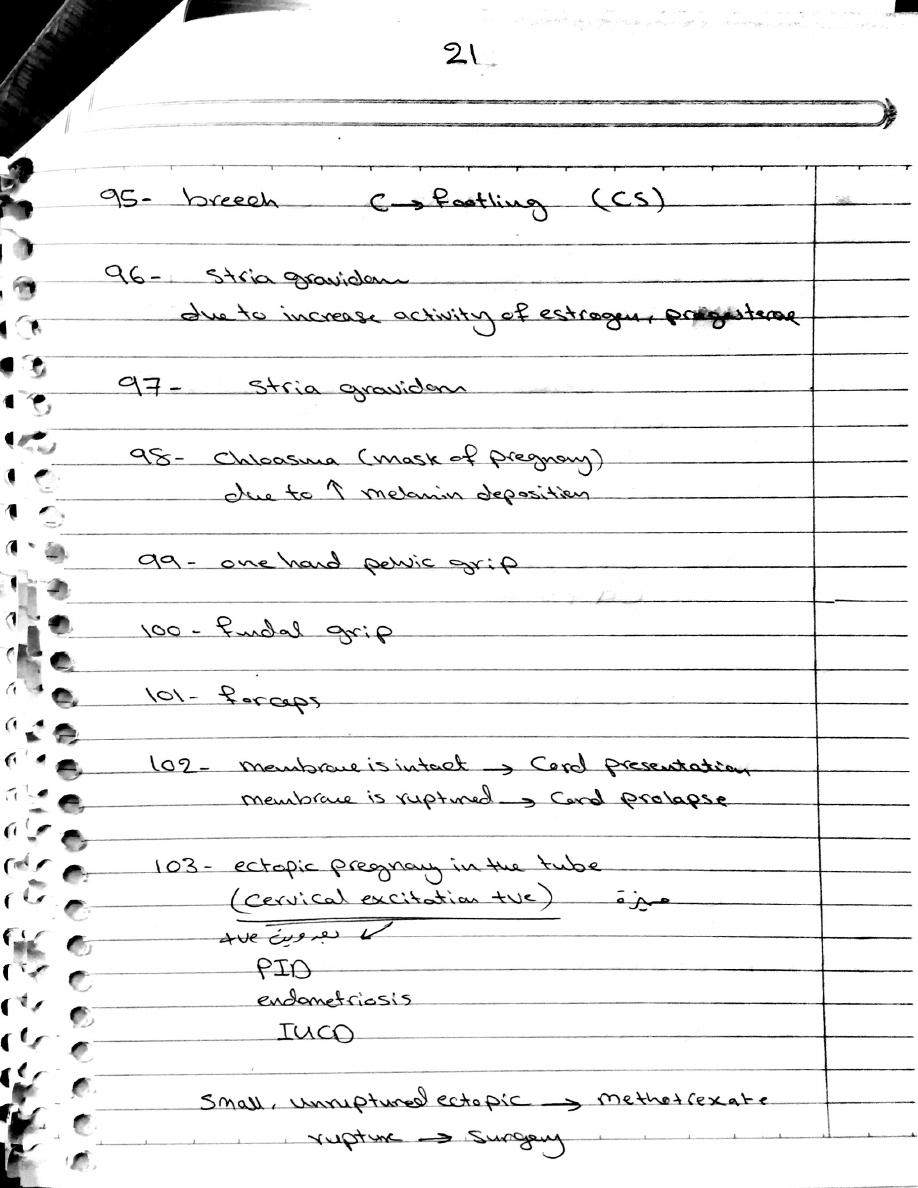 21
95- breech C → footling (CS)
96- Stria gravidam
due to increase activity of estrogen, progesterone
97- Stria gravidam
98- Chloasma (mask of pregnany)
due to ↑ melanin deposition
99- one hand pelvic grip
100- fundal grip
101- forceps
102- membrane is intact → Cord presentation
membrane is ruptured → Cord prolapse
103- ectopic pregnany in the tube
(Cervical excitation +ve) مميزة
+ve
PID
endometriosis
IUCD
Small, unruptured ectopic → methotrexate
rupture → Surgery